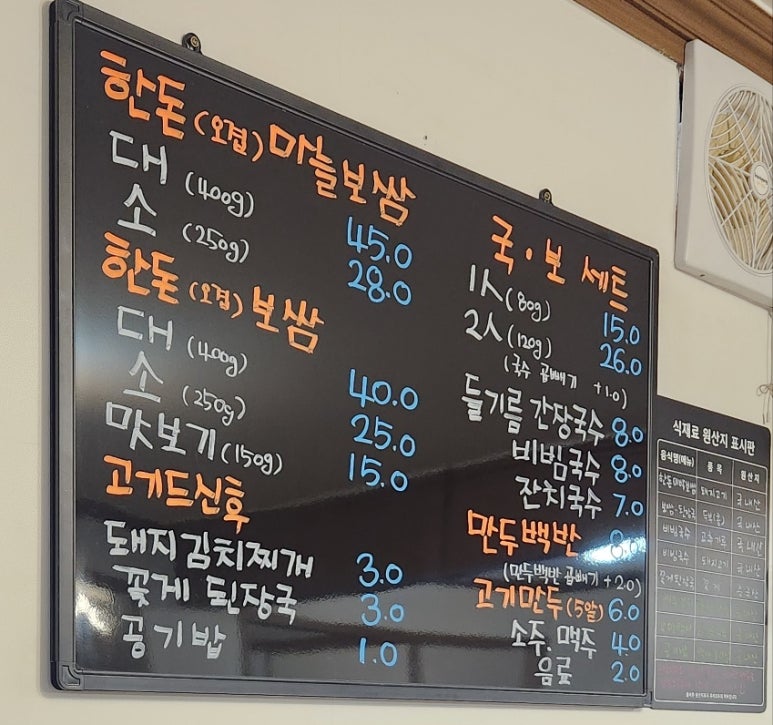 한돈 (오겹) 마늘보쌈
대 (400g) 45.0
소 (250g) 28.0
한돈 (오겹) 보쌈
대 (400g) 40.0
소 (250g) 25.0
맛보기 (150g) 15.0
고기드신후
돼지김치찌개 3.0
꽃게 된장국 3.0
공기밥 1.0
국·보 세트
1人 (80g) 15.0
2人 (120g) 26.0
(국수 곱빼기 +1.0)
들기름 간장국수 8.0
비빔국수 8.0
잔치국수 7.0
만두백반 8.0
(만두백반 곱빼기 +2.0)
고기만두 (5알) 6.0
소주. 맥주 4.0
음료 2.0
식재료 원산지 표시판
음식명(메뉴) 품목 원산지
돼지고기 국내산
국내산
비빔국수 고춧가루 국내산
비빔국수 돼지고기 국내산